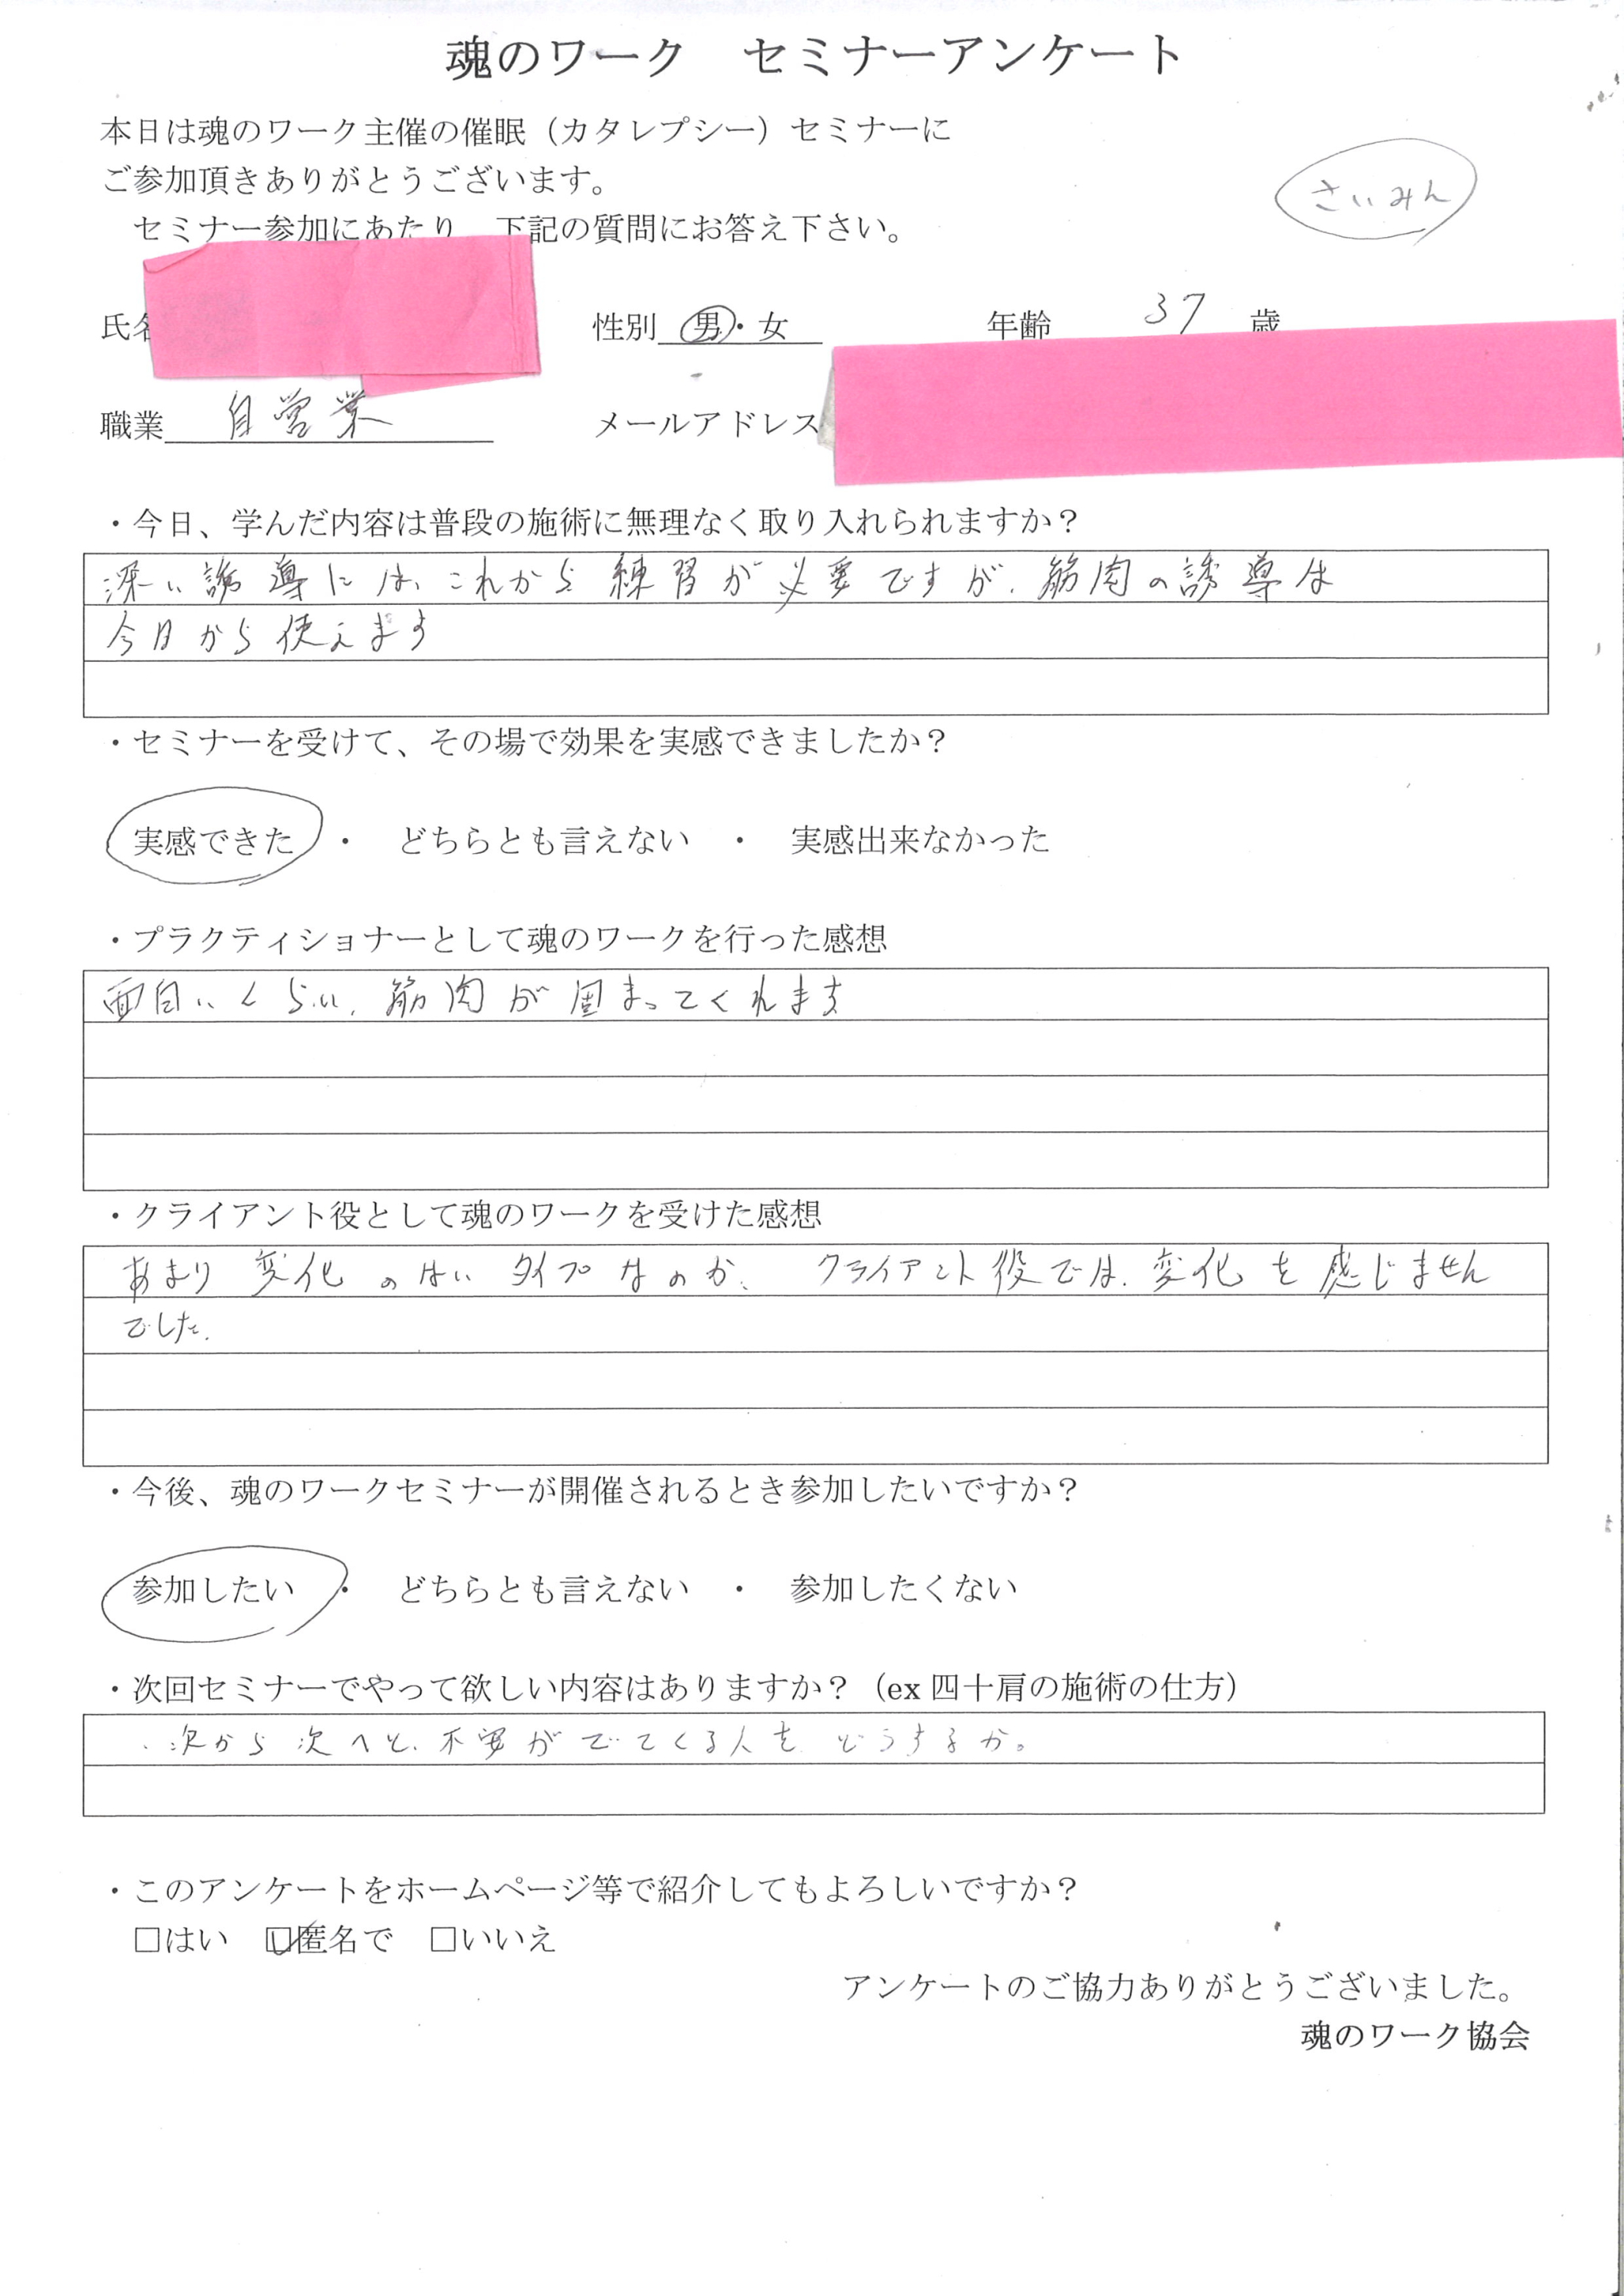 魂のワーク　セミナーアンケート
本日は魂のワーク主催の催眠（カタレプシー）セミナーに
ご参加頂きありがとうございます。
さいみん
セミナー参加にあたり　下記の質問にお答え下さい。
氏名　性別　男・女　年齢　37　歳
職業　自営業　メールアドレス
・今日、学んだ内容は普段の施術に無理なく取り入れられますか？
深い誘導には、これから練習が必要ですが、筋肉の誘導は
今日から使えます
・セミナーを受けて、その場で効果を実感できましたか？
実感できた　・　どちらとも言えない　・　実感出来なかった
・プラクティショナーとして魂のワークを行った感想
面白いくらい、筋肉が固まってくれます
・クライアント役として魂のワークを受けた感想
あまり変化のないタイプなのか、クライアント役では、変化を感じません
でした。
・今後、魂のワークセミナーが開催されるとき参加したいですか？
参加したい　・　どちらとも言えない　・　参加したくない
・次回セミナーでやって欲しい内容はありますか？（ex 四十肩の施術の仕方）
・次から次へと、不安がでてくる人を どうするか。
・このアンケートをホームページ等で紹介してもよろしいですか？
□はい　☑匿名で　□いいえ
アンケートのご協力ありがとうございました。
魂のワーク協会